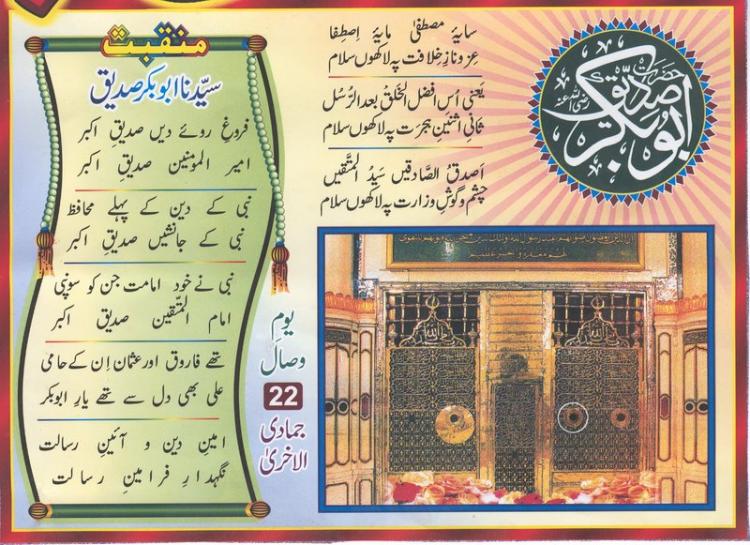 حضرت ابوبکر صدیق رضی اللہ عنہ
سایۂ مصطفیٰ مایۂ اِصطِفا
عِزّ و نازِ خِلافت پہ لاکھوں سلام
یعنی اُس افضل الخلق بعد الرُّسُل
ثانی اثنین ہجرت پہ لاکھوں سلام
اَصدقُ الصّادقیں سَیِّدُ المتّقیں
چشم و گوشِ وِزارت پہ لاکھوں سلام
منقبت
سیّدنا ابوبکر صدیق
فروغِ روئے دیں صدیقِ اکبر
امیر المومنین صدیقِ اکبر
نبی کے دین کے پہلے محافظ
نبی کے جانشیں صدیقِ اکبر
نبی نے خود امامت جن کو سونپی
امام المتّقین صدیق اکبر
تھے فاروق اور عثمان اِن کے حامی
علی بھی دل سے تھے یارِ ابوبکر
امینِ دین و آئینِ رسالت
نگہدارِ فرامینِ رسالت
یومِ
وصال
22
جمادی
الاخریٰ